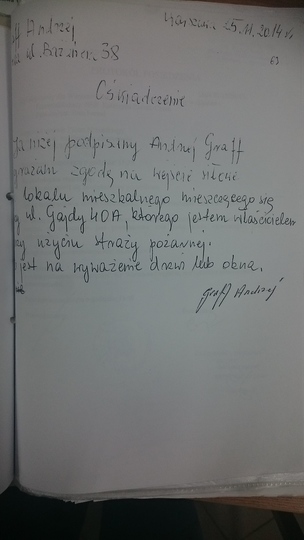 ff Andrzej
Warszawa 25.11.2014 r.
ul. Bazinera 38
63
Oświadczenie
Ja niżej podpisany Andrzej Graff
wyrażam zgodę na wejście siłowe
lokalu mieszkalnego mieszczącego się
ul. Gajdy 40A, którego jestem właścicielem
użyciu straży pożarnej.
jest na wyważenie drzwi lub okna.
Graff Andrzej